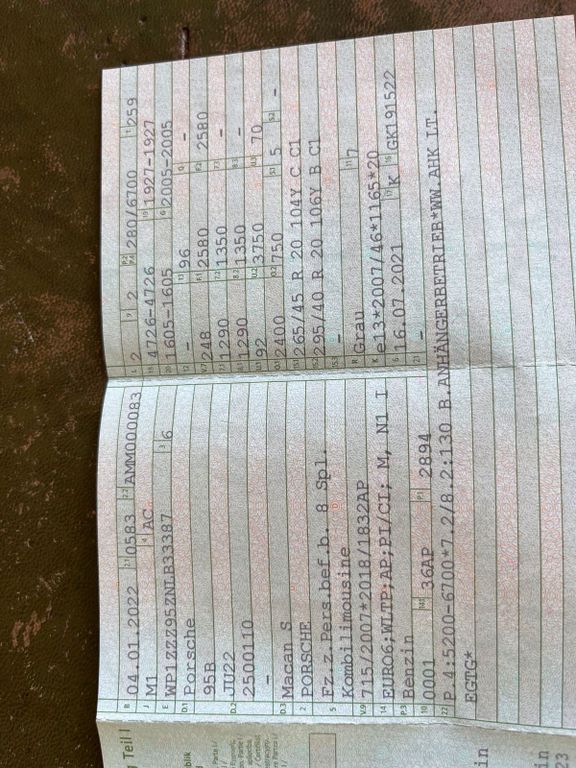 g Teil I
B 04.01.2022 2.1 0583 2.2 AMM000083
J M1 4 AC
E WP1ZZZ95ZNLB33387 3 6
D.1 Porsche
95B
D.2 JU22
2500110
-
D.3 Macan S
2 PORSCHE
5 Fz.z.Pers.bef.b. 8 Spl.
Kombilimousine
V.9 715/2007*2018/1832AP
14 EURO6;WLTP;AP;PI/CI; M, N1 I
P.3 Benzin
10 0001 14.1 36AP P.1 2894
22 P.4:5200-6700*7.2/8.2:130 B.ANHÄNGERBETRIEB*WW.AHK LT.
EGTG*
L 2 9 2 P.2 P.4 280/6700 T 259
18 4726-4726 19 1927-1927
20 1605-1605 G 2005-2005
12 - 13 96 Q -
V.7 248 F.1 2580 F.2 2580
7.1 1290 7.2 1350 7.3 -
8.1 1290 8.2 1350 8.3 -
U.1 92 U.2 3750 U.3 70
O.1 2400 O.2 750 S.1 5 S.2 -
15.1 265/45 R 20 104Y C C1
15.2 295/40 R 20 106Y B C1
15.3 -
R Grau 11 7
K e13*2007/46*1165*20
6 16.07.2021 17 K 16 GK191522
21 -